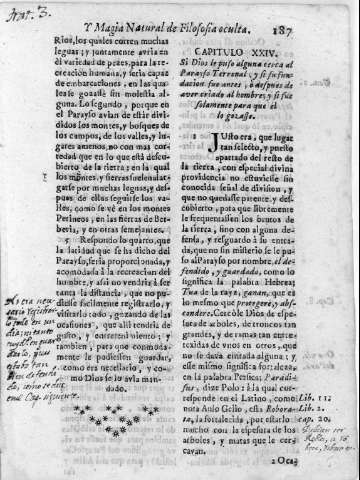 Y Magia Natural de Filosofia oculta. 187
Rios, los quales corren muchas
leguas; y juntamente avria en
èl variedad de pezes, para la re-
creacion humana, y seria capaz
de embarcaciones, en las qua-
les se gozasse sin molestia al-
guna. Lo segundo, porque en
el Parayso avian de estàr divi-
didos los montes, y bosques de
los campos, de los valles, y lu-
gares amenos, no con mas cor-
tedad que en lo que està descu-
bierto de la tierra; en la qual
los montes, y sierras suelen dila-
tarse por muchas leguas, y des-
pues de ellas seguirse los va-
lles, como se vè en los montes
Perineos, en las sierras de Ber-
beria, y en otras semejantes.
5 Respondo lo quarto, que
la latitud que se hà dicho del
Parayso, seria proporcionada, y
acomodada à la recreacion del
hombre, y assi no vendria à ser
tanta la distancia, que no pu-
diesse facilmente registrarlo, y
visitarlo todo, gozando de las
ocasiones, que alli tendria de
gusto, y contentamiento; y
tambien, para que comoda-
mente le pudiessen guardar,
como era necessario, y co-
mo Dios se lo avia man-
dado.
CAPITULO XXIV.
Si Dios le puso alguna cerca al
Parayso Terrenal; y si su fun-
dacion fue antes, ò despues de
aver criado al hombre; y si fue
solamente para que èl
lo gozasse.
JUsto era, que lugar
tan selecto, y puesto
apartado del resto de
la tierra, con especial divina
providencia no estuviesse sin
conocida señal de division, y
que no quedasse patente, y des-
cubierto, para que libremente
le frequentassen los brutos de
la tierra, sino con alguna de-
fensa, y resguardo à su entra-
da, que no sin misterio se le pu-
so al Parayso por nombre, el de-
fendido, y guardado, como lo
significa la palabra Hebrea;
Tua de la rayz, ganan, que es
lo mismo que protegere, y abs-
condere. Cercòle Dios de espe-
sura de arboles, de troncos tan
grandes, y de ramas tan entre-
texidas de vnos en otros, que
no se dava entrada alguna; y
esse mismo significa fortaleza
en la palabra Persica; Paradi-
sus, dize Polo: à la qual cor-
responde en el Latino, como
nota Aulo Gelio, esta Robora-
ta, la fortalecida, por estarlo
mucho con la espesura de los
arboles, y matas que le cer-
cavan.
Lib. 1 12
Lib. 2.
cap. 20.
2 Oca-